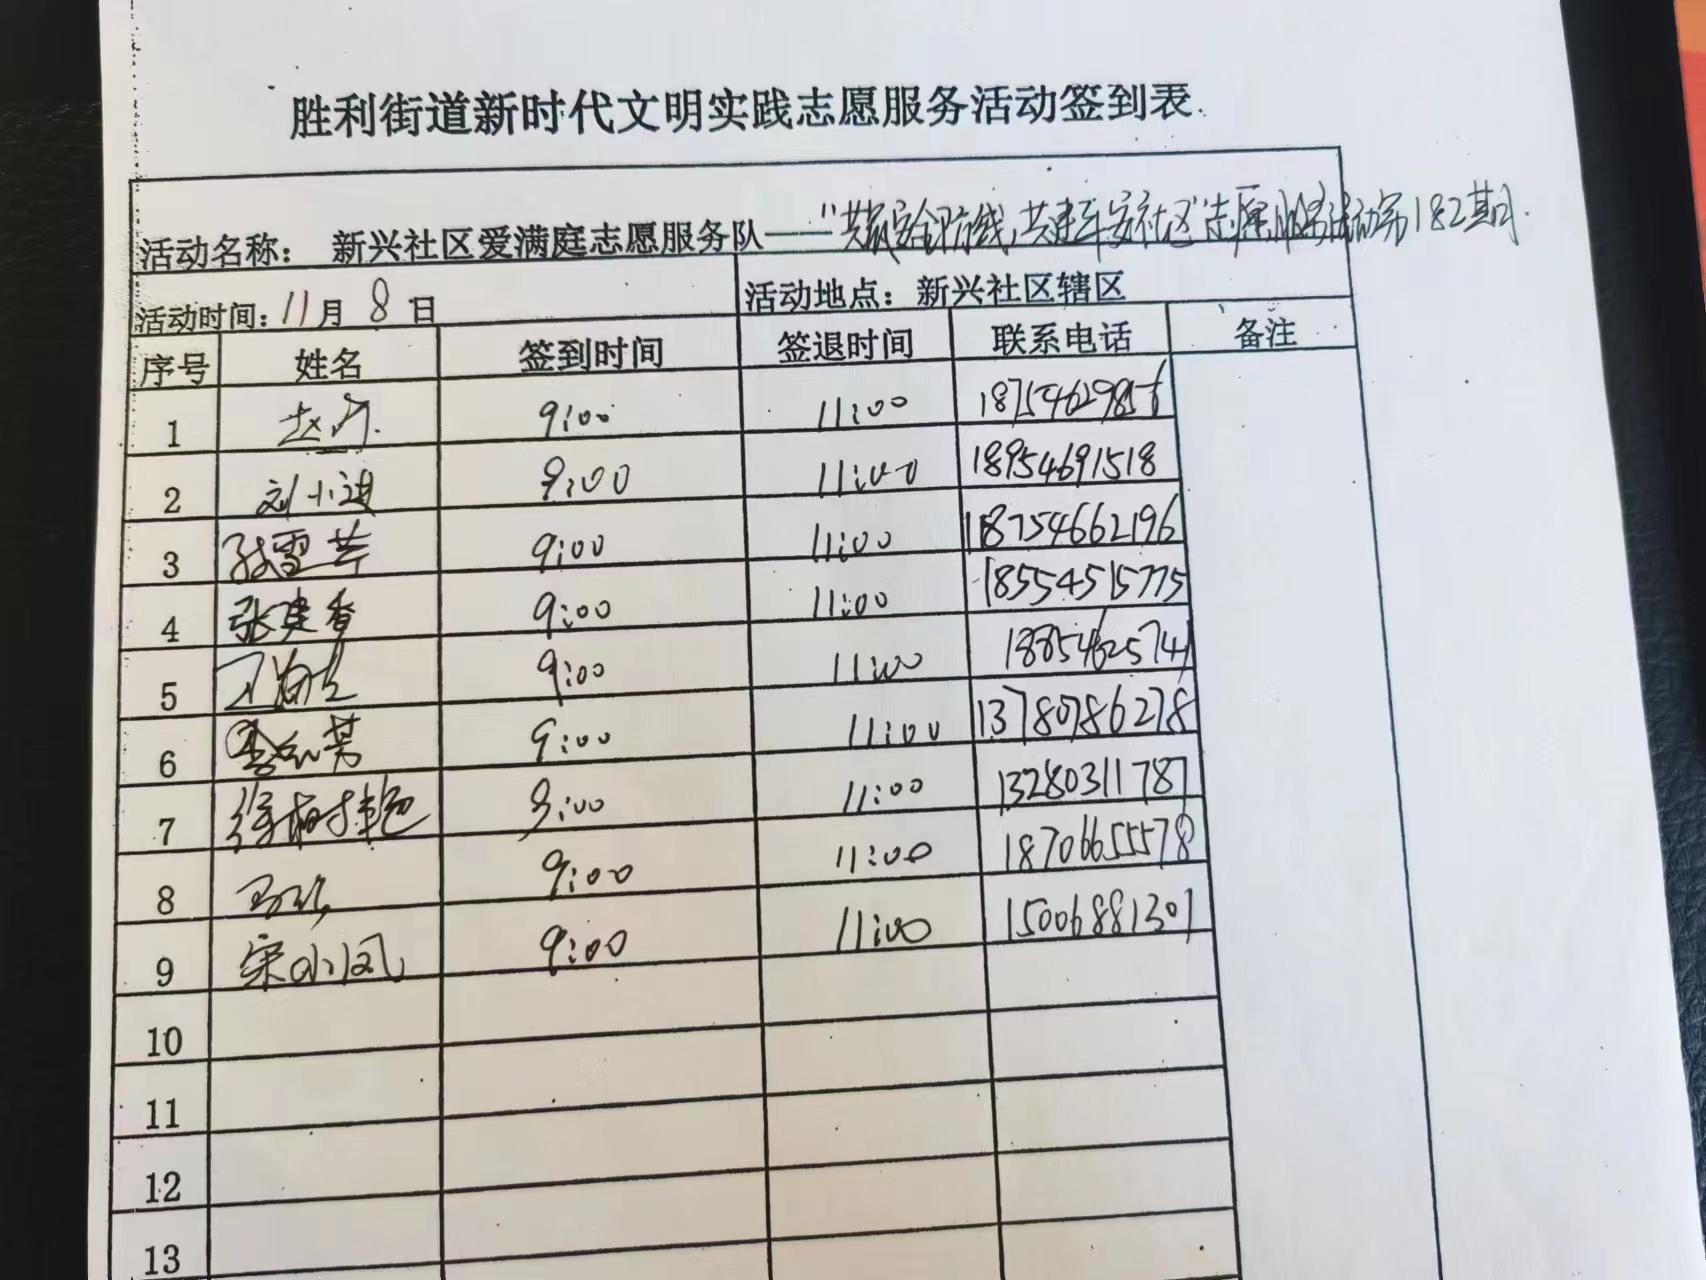 胜利街道新时代文明实践志愿服务活动签到表
活动名称： 新兴社区爱满庭志愿服务队——“共筑安全防线，共建平安社区”志愿服务活动第182期
活动时间：11月8日 活动地点：新兴社区辖区
序号 姓名 签到时间 签退时间 联系电话 备注
1 9:00 11:00 18754629856
2 刘小进 9:00 11:00 18954691518
3 张雪芹 9:00 11:00 18754662196
4 张建香 9:00 11:00 18554515775
5 9:00 11:00 18854625741
6 9:00 11:00 13780786278
7 9:00 11:00 13280311787
8 9:00 11:00 18706655578
9 宋小凤 9:00 11:00 15006881301
10
11
12
13